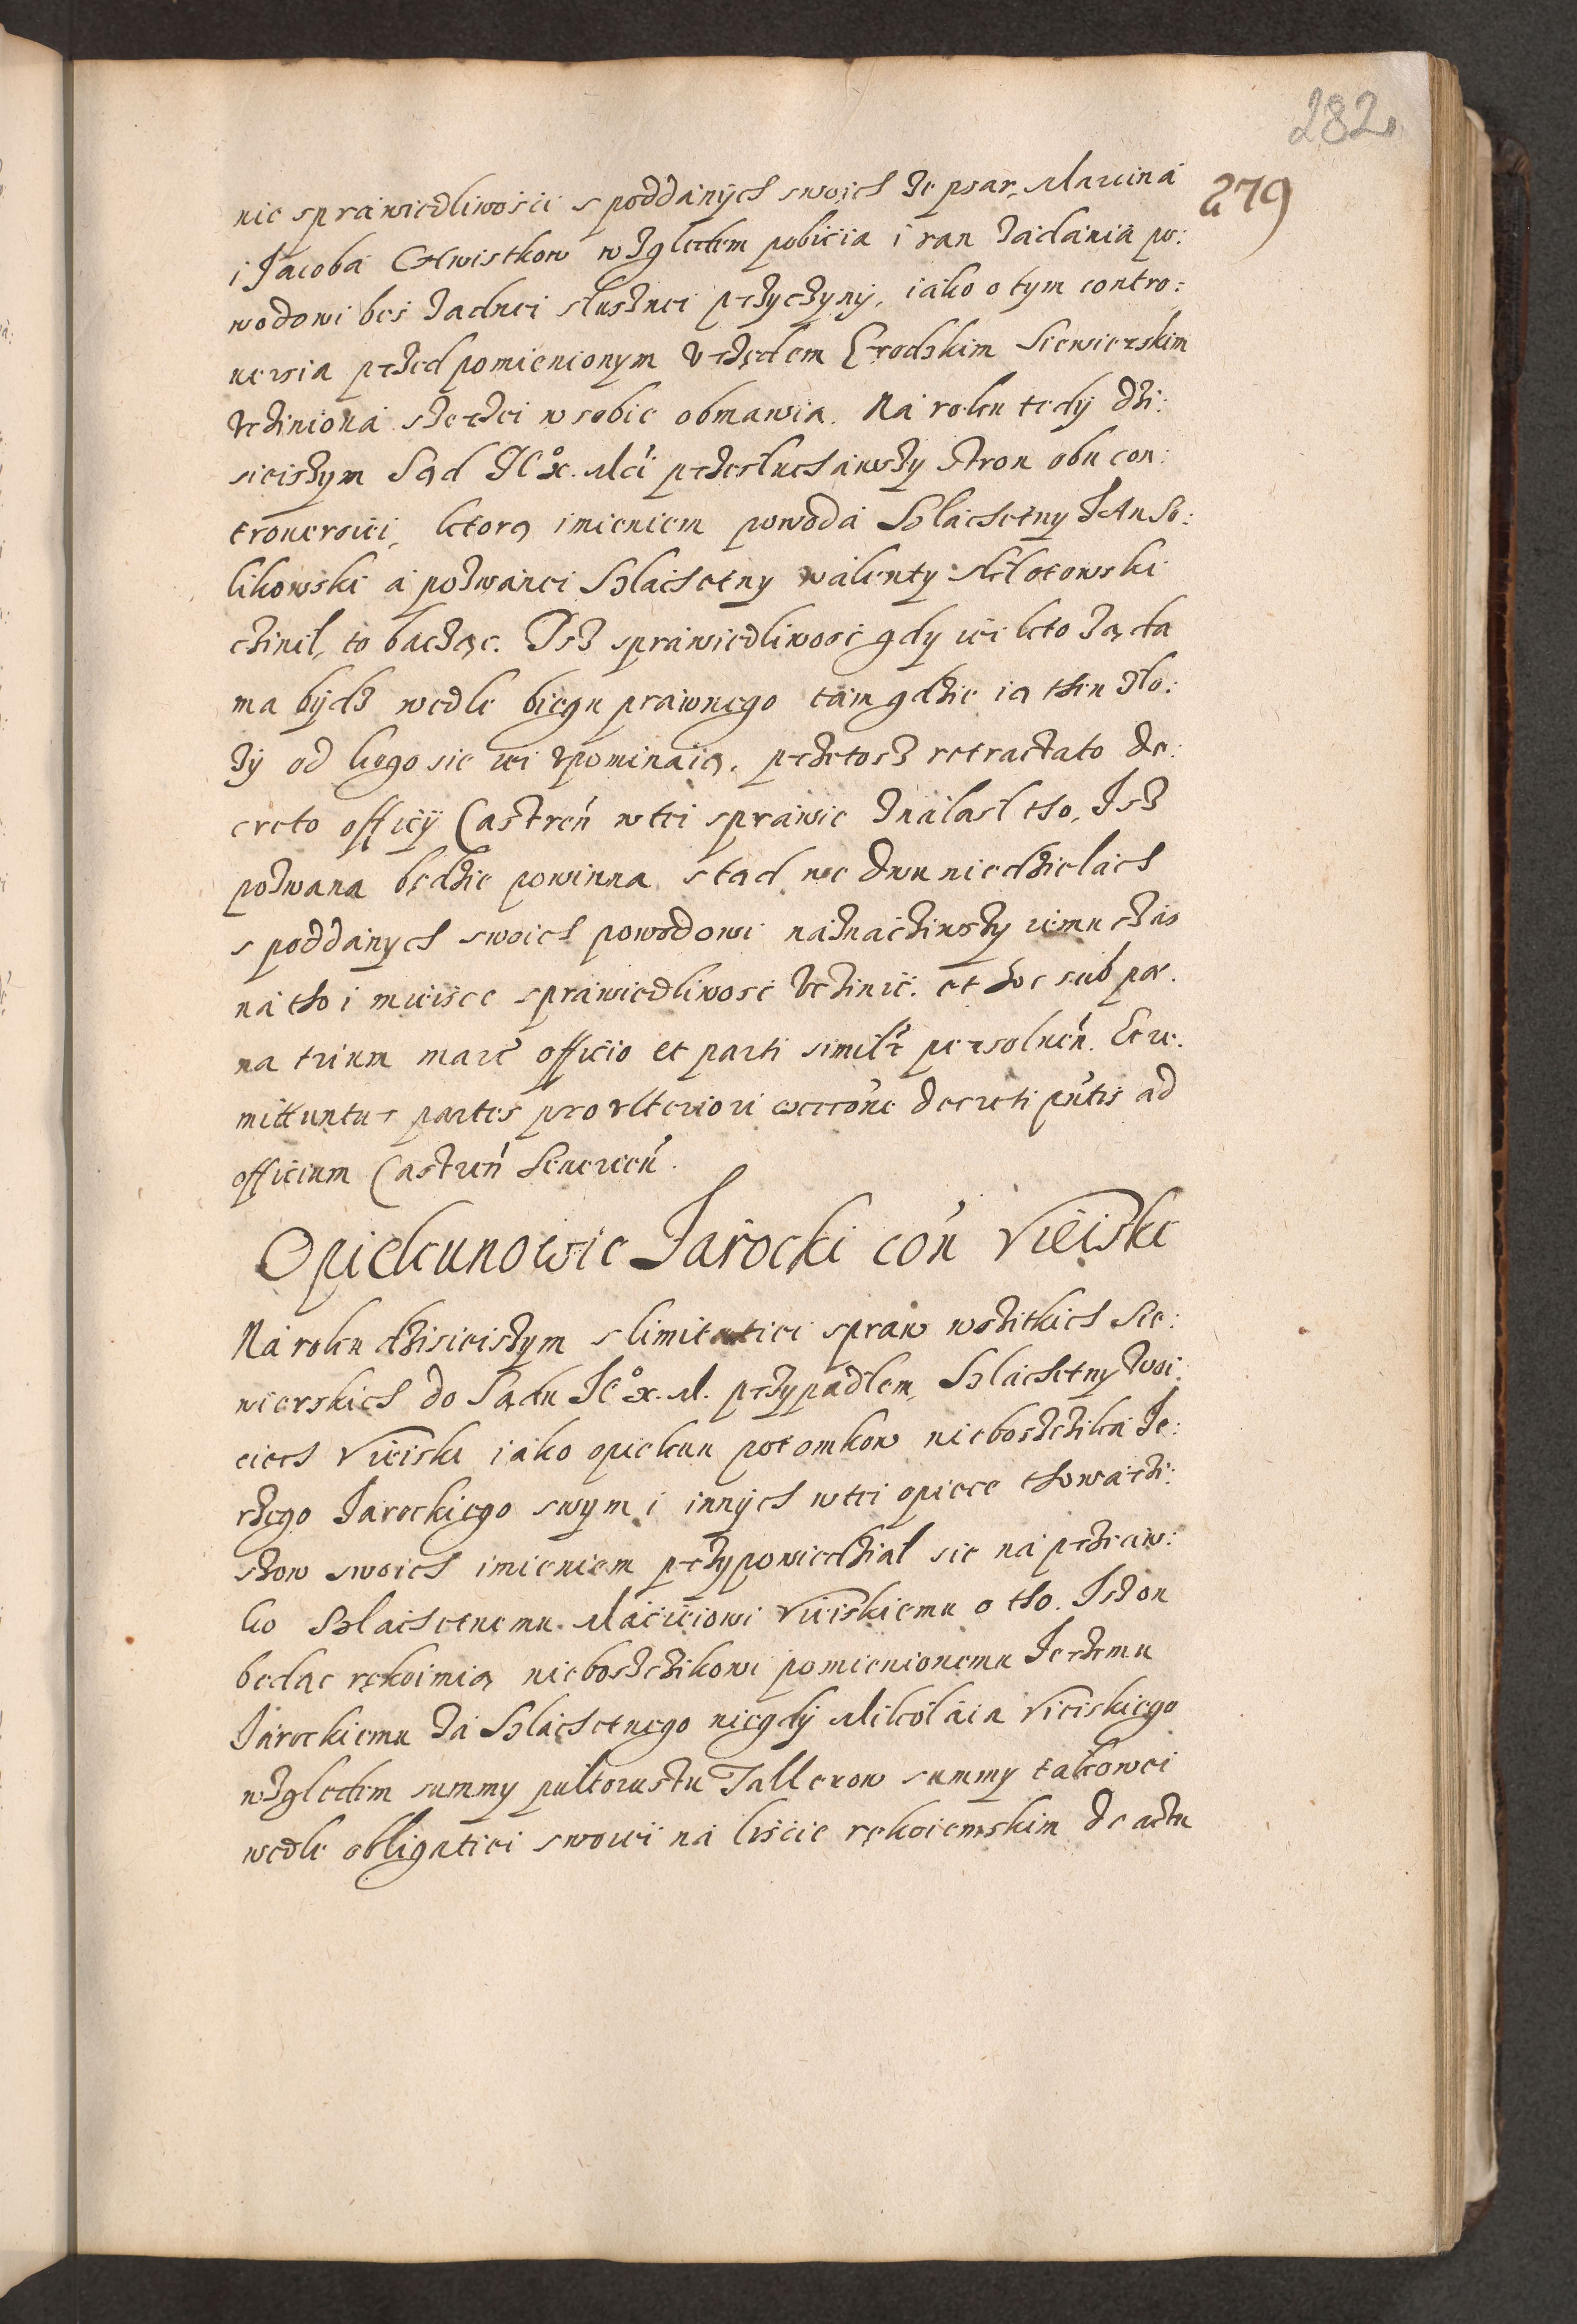 282
279
nie spráwiedliwości s poddánych swoich ze psar, Marciná
i Jacobá Chwistkow wzgledem pobicia i ran zádánia po:
wodowi bes żadnei slusznei przyczyny, iáko o tym contro:
uersia przed pomienionym Vrzędem Grodzkim Siewierskim
Vczinioná szerzei w sobie obmawia. Ná roku tedy dzi:
sieiszym Sąd JEº X. Mći przesłuchawszy stron obu con:
trouersiei, ktorą imieniem powodá Szláchetny JAn So:
likowski á pozwánei Szláchetny walenty Młotowski
czinił, to bacząc. Isz spráwiedliwość gdy iei kto żąda
ma bydz wedle biegu práwnego tám gdzie ią then zło:
ży od kogo sie iei vpomináią. przetosz retractato de:
creto officij Castreń w tei spráwie ználasł tho, Isz
pozwana będzie powinna stąd we dwu niedzielách
s poddánych swoich powodowi náznácziwszy iemu czás
ná tho i mieisce spráwiedliwość Vczinić. et hoc sub pae.
na trium marc officio et parti similr persoluen. Et re:
mittuntur partes pro vlteriori exccone decreti pntis ad
officium Castren Seuerien.
Opiekunowie Jarocki con Vieiski
Ná roku dzisieiszym s limitatiei spraw wszitkich Sie:
wierskich do Sądu JEº X. M. przypádłem, Szláchetny Woi:
ciech Vieiski iáko opiekun potomkow nieboszczika Je:
rzego Jarockiego swym i innych w tei opiece thowárzi:
szow swoich imieniem przypowiedział sie ná przeciw:
ko Szláchetnemu Mácieiowi Vieiskiemu o tho. Isz on
bedąc rękoimią nieboszczikowi pomienionemu Jerzemu
Járockiemu zá Szláchetnego niegdy Mikołáia Vieiskiego
wzgledem summy pultorustu Tallerow summy takowei
wedle obligatiei swoiei ná liście rękoiemskim de actu